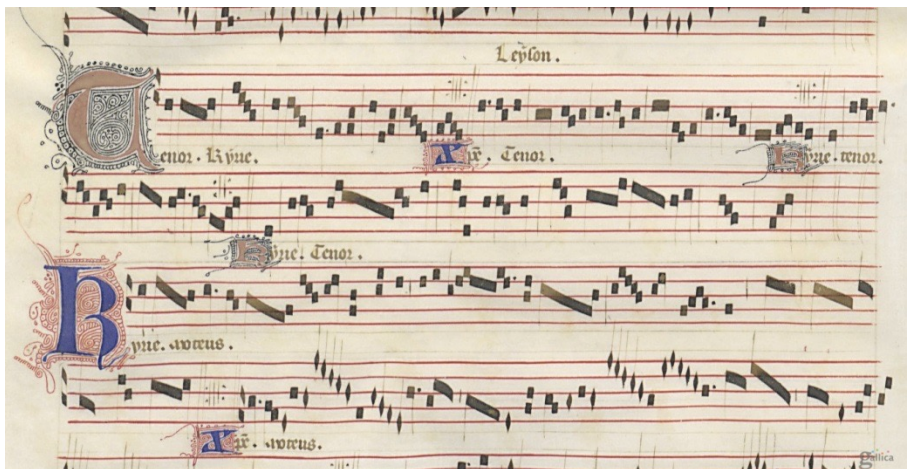 Leyson.
Tenor. Kyrie. Xpe. Tenor. Kyrie. tenor.
Kyrie. Tenor.
Kyrie. moteus.
Xpe. moteus.
gallica